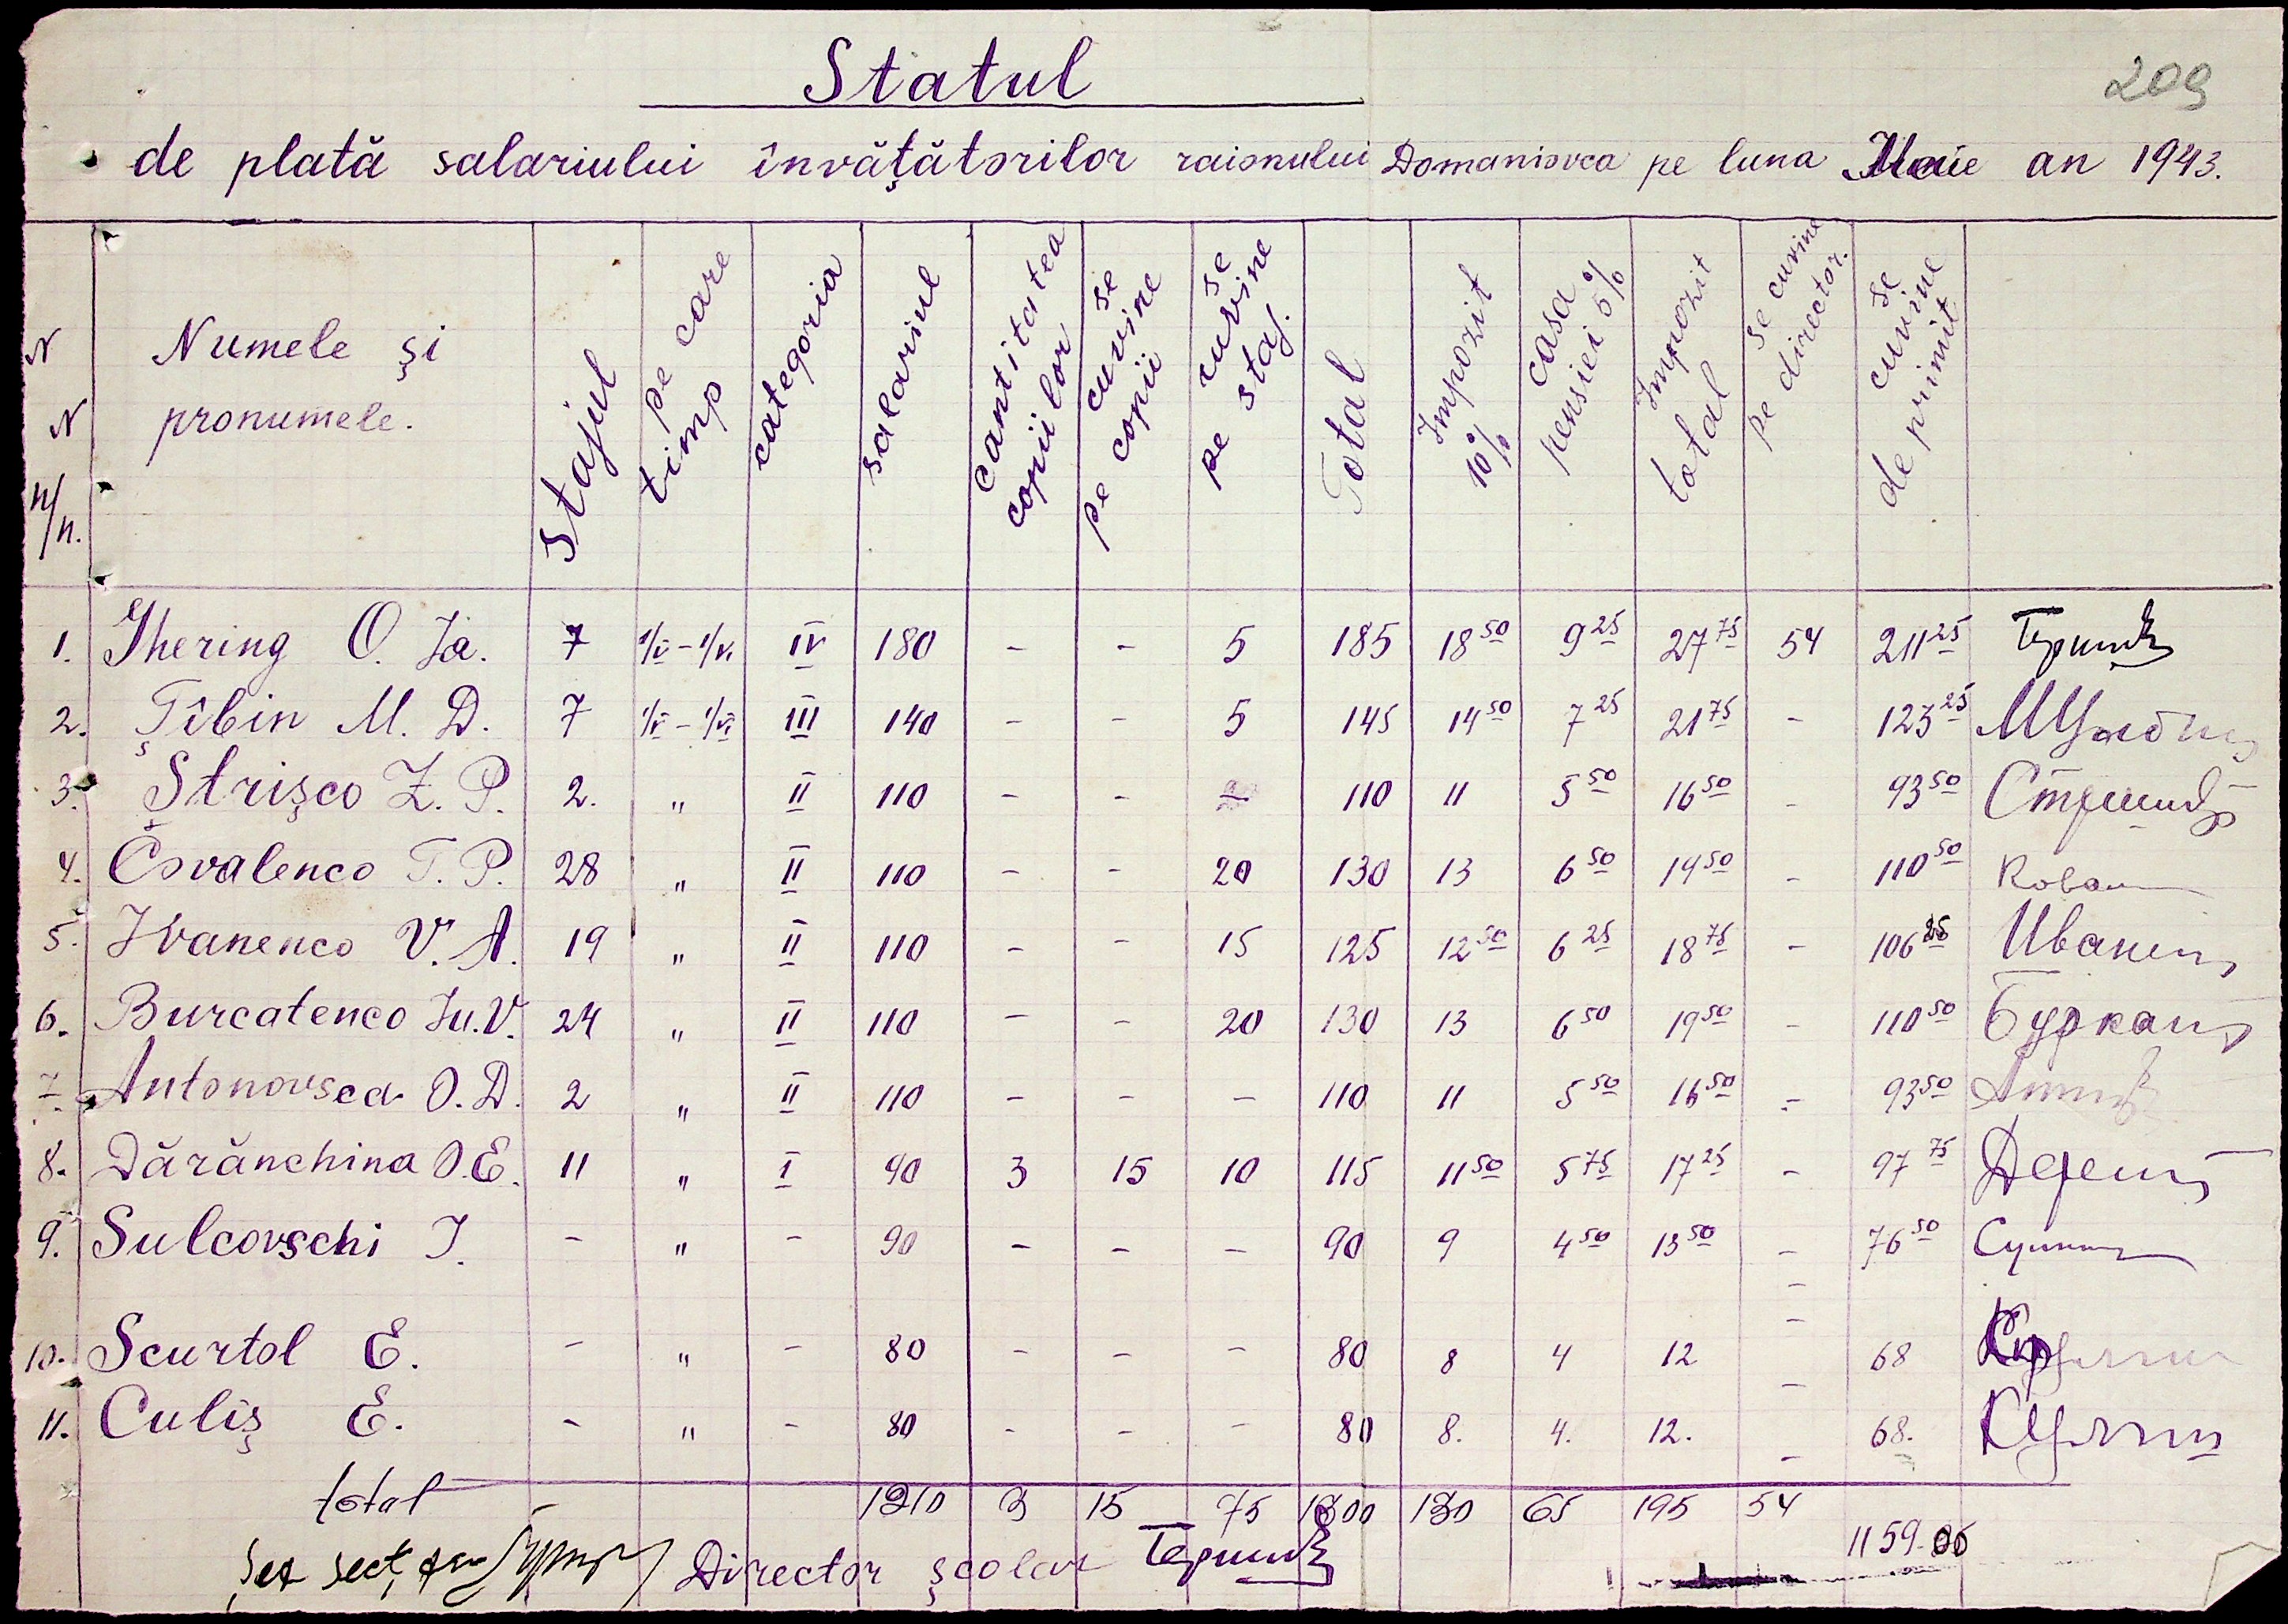 209
Statul
de plată salariului învățătorilor raionului Domaniovca pe luna Maie an 1943.
N N n/n. Numele și pronumele. Stajul pe care timp categoria salariul cantitatea copiilor se cuvine pe copii se cuvine pe staj. Total Impozit 10% casa pensiei 5% Impozit total se cuvine pe director. se cuvine de primit
1. Ghering O. Ja. 7 1/V-1/VI IV 180 - - 5 185 18 50 9 25 27 75 54 211 25
2. Țîbin M. D. 7 1/V-1/VI III 140 - - 5 145 14 50 7 25 21 75 - 123 25
3. Ștrișco Z. P. 2. " II 110 - - - 110 11 5 50 16 50 - 93 50
4. Covalenco T. P. 28 " II 110 - - 20 130 13 6 50 19 50 - 110 50 Ковал
5. Ivanenco V. A. 19 " II 110 - - 15 125 12 50 6 25 18 75 - 106 25 Иванен
6. Burcatenco Iu. V. 24 " II 110 - - 20 130 13 6 50 19 50 - 110 50 Буркат
7. Antonovsca O. D. 2 " II 110 - - - 110 11 5 50 16 50 - 93 50
8. Dărănchina O. E. 11 " I 90 3 15 10 115 11 50 5 75 17 25 - 97 75
9. Sulcovschi I. - " - 90 - - - 90 9 4 50 13 50 - 76 50
10. Scurtol E. - " - 80 - - - 80 8 4 12 - 68
11. Culiș E. - " - 80 - - - 80 8. 4. 12. - 68.
total 1210 3 15 75 1300 130 65 195 54
1159-00
Șef secț
Director școlar